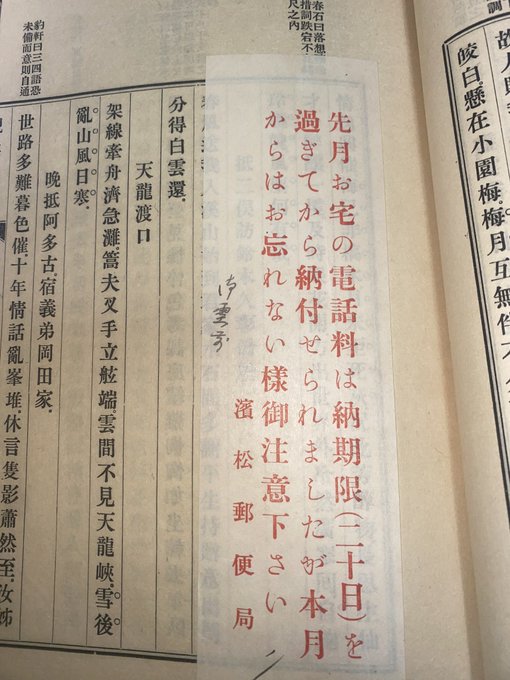 皎白。懸在小園梅。梅月互無伴
先月お宅の電話料は納期限(二十日)を
過ぎてから納付せられましたが本月
からはお忘れない様御注意下さい
濱松郵便局
春石曰落想
措詞跌宕不
尺之内
豹軒曰三四語恐
未備而意則自通
分得白雲還。
天龍渡口
架線牽舟濟急灘。篙夫叉手立舷端。雲間不見天龍峽。雪後
亂山風日寒。
晩抵阿多古。宿義弟岡田家。
世路多難暮色催。十年情話亂峯堆。休言隻影蕭然至。汝姊